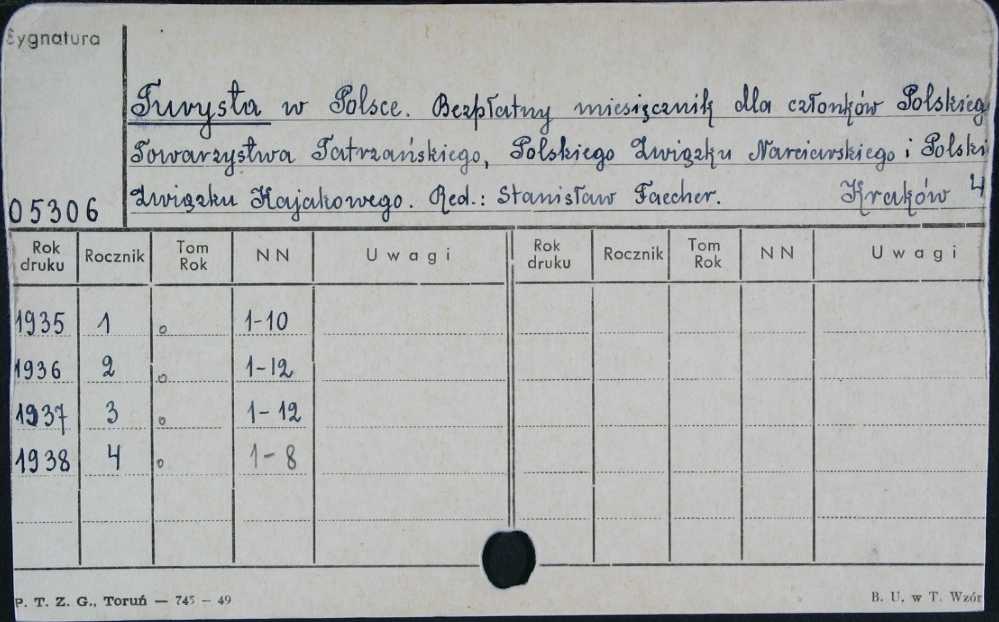 Sygnatura
Turysta w Polsce. Bezpłatny miesięcznik dla członków Polskieg
Towarzystwa Tatrzańskiego, Polskiego Związku Narciarskiego i Polski
Związku Kajakowego. Red.: Stanisław Faecher. Kraków 4
05306
Rok druku Rocznik Tom Rok NN Uwagi Rok druku Rocznik Tom Rok NN Uwagi
1935 1 o 1-10
1936 2 o 1-12
1937 3 o 1-12
1938 4 o 1-8
P. T. Z. G., Toruń — 745 — 49 B. U. w T. Wzór